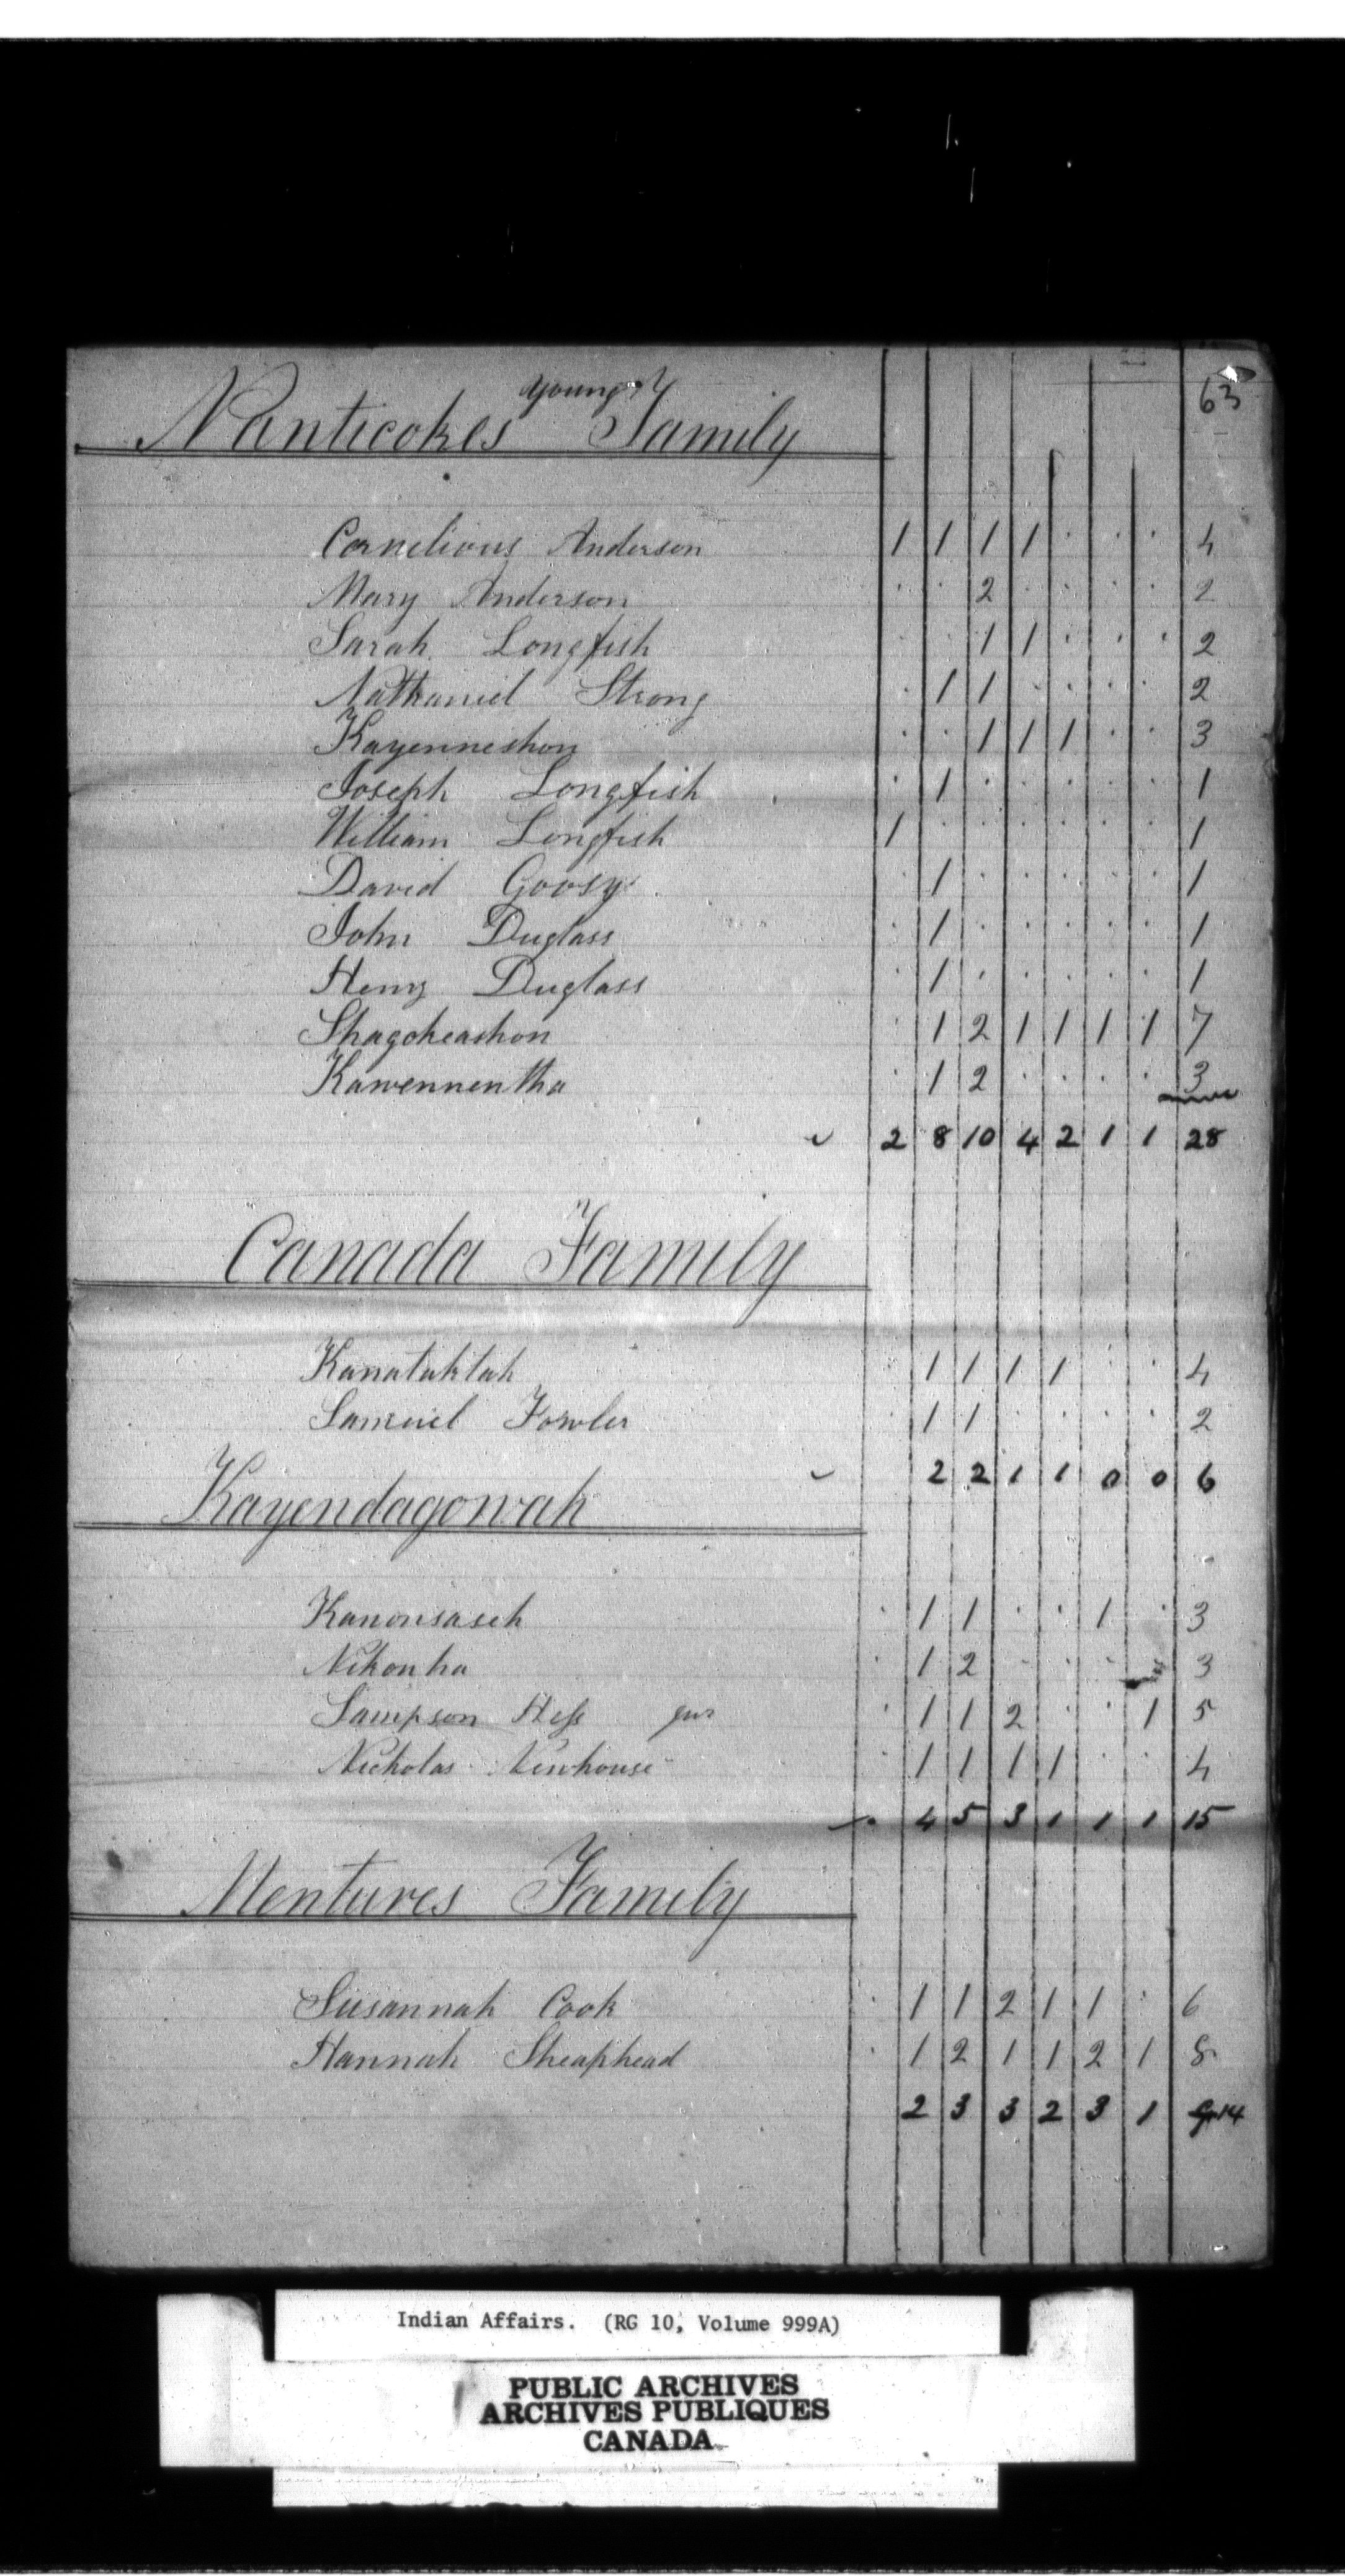 63
Young's
Nanticokes Family
Cornelious Anderson 1 1 1 1 . . . 4
Mary Anderson . . 2 . . . . 2
Sarah Longfish . . 1 1 . . . 2
Nathaniel Strong . 1 1 . . . . 2
Kayenneshon . . 1 1 1 . . 3
Joseph Longfish . 1 . . . . . 1
William Longfish 1 . . . . . . 1
David Goosy . 1 . . . . . 1
John Duglass . 1 . . . . . 1
Henry Duglass . 1 . . . . . 1
Shagokeashon . 1 2 1 1 1 1 7
Kawennentha . 1 2 . . . . 3
2 8 10 4 2 1 1 28
Canada Family
Kanataktah . 1 1 1 1 . . 4
Samuel Fowler . 1 1 . . . . 2
2 2 1 1 0 0 6
Kayendagowah
Kanonsaseh . 1 1 . . 1 . 3
Nikonha . 1 2 . . . . 3
Sampson Hess . 1 1 2 . . 1 5
Nicholas Newhouse . 1 1 1 1 . . 4
4 5 3 1 1 1 15
Mentures Family
Susannah Cook . 1 1 2 1 1 . 6
Hannah Sheaphead . 1 2 1 1 2 1 8
2 3 3 2 3 1 14
Indian Affairs. (RG 10, Volume 999A)
PUBLIC ARCHIVES
ARCHIVES PUBLIQUES
CANADA